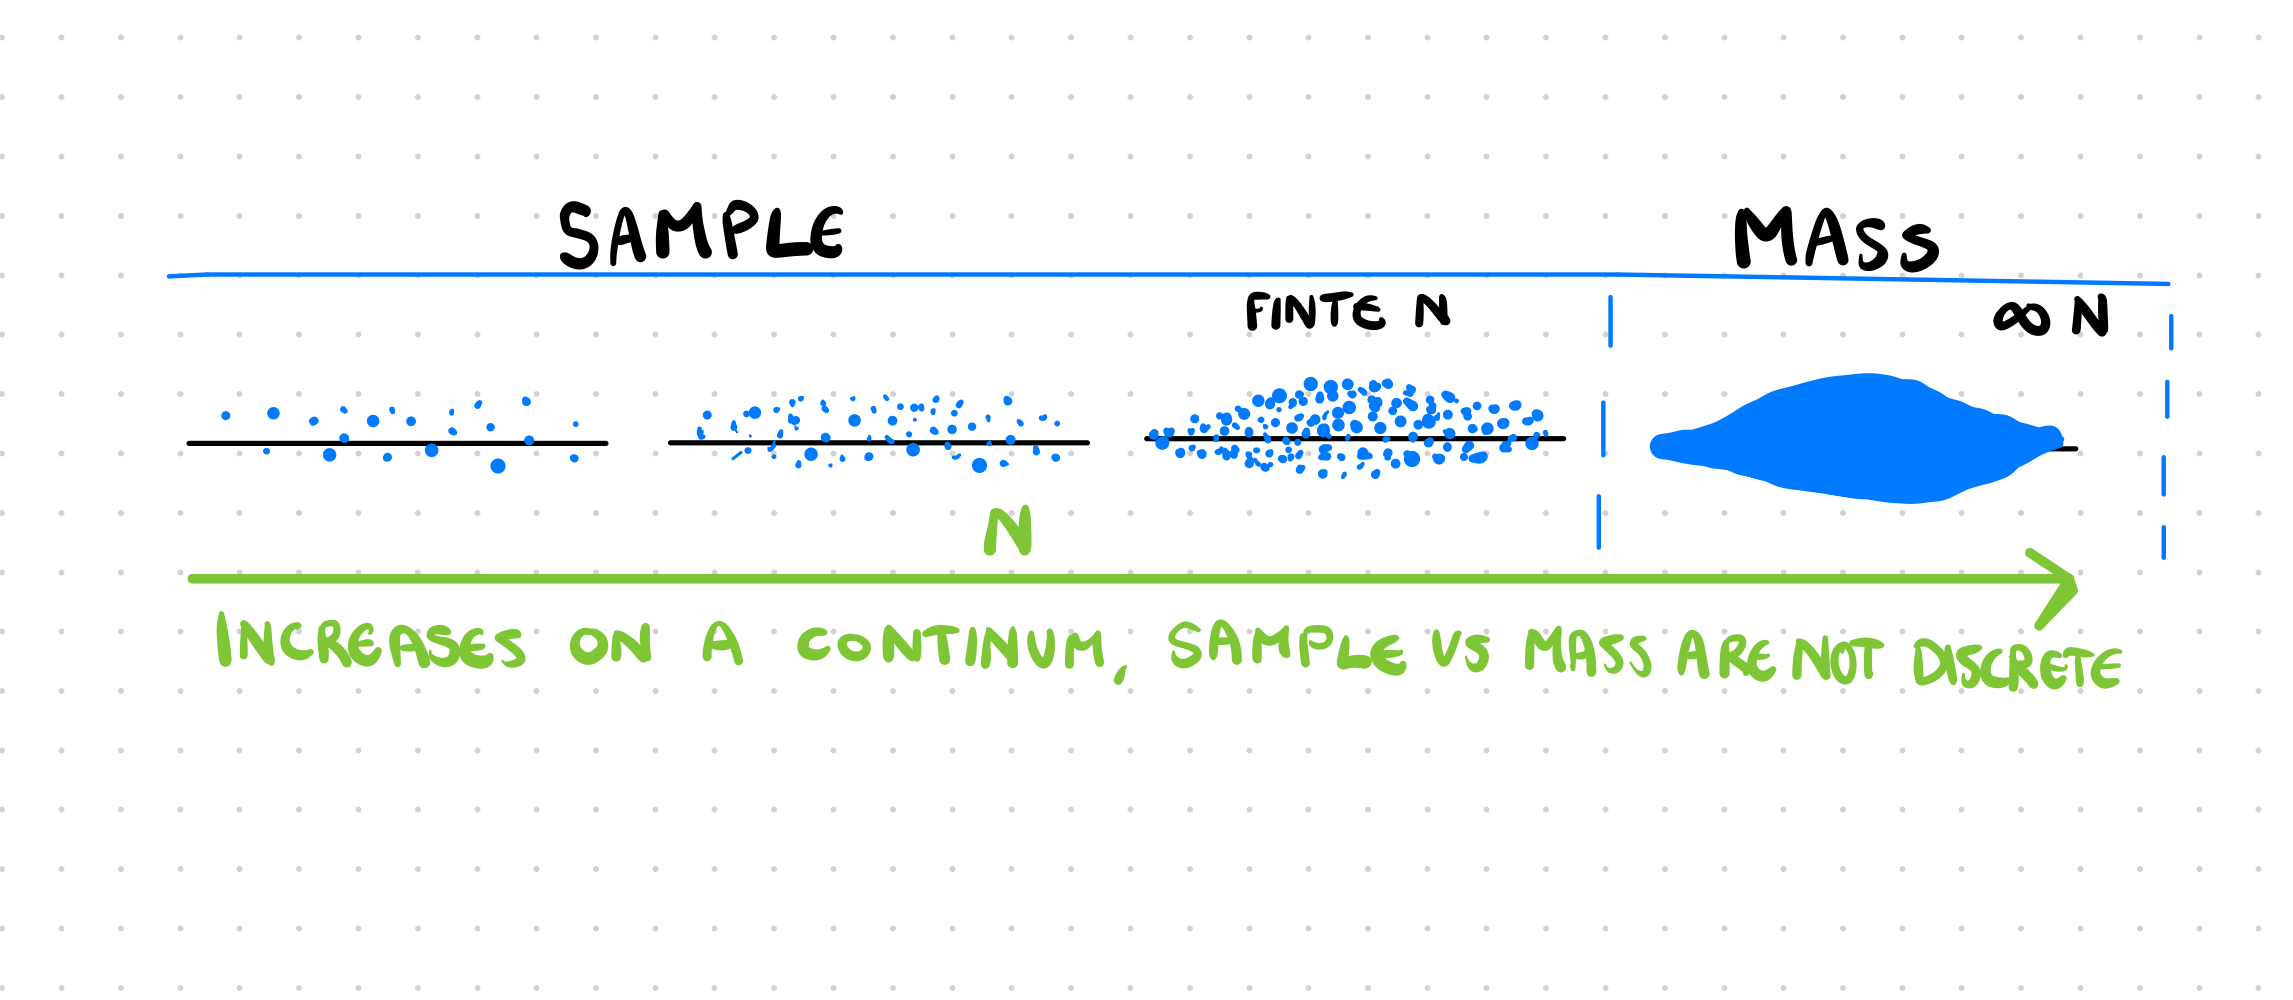 SAMPLE MASS
FINTE N ∞ N
N
INCREASES ON A CONTINUM, SAMPLE VS MASS ARE NOT DISCRETE